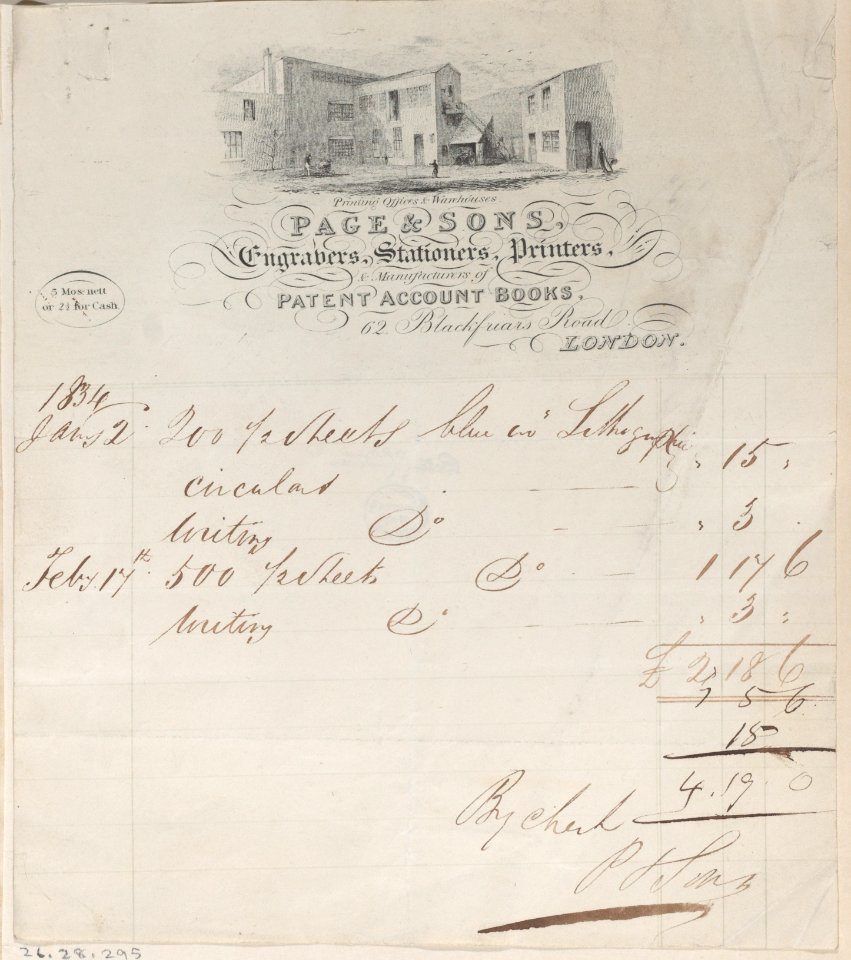 Printing Offices & Warehouses.
PAGE & SONS,
Engravers, Stationers, Printers,
& Manufacturers of
PATENT ACCOUNT BOOKS,
62 Blackfriars Road
LONDON.
5 Mos. nett
or 2½ for Cash.
1834
Jany 2 200 ½ sheets blue Lithographic " 15 "
circulars
Writing Do " 3 .
Feby 17th 500 ½ sheets Do 1 17 6
Writing Do " 3 "
£ 2 18 6
5 6
18
4.19.0
By check
P & Sons
26.28.295